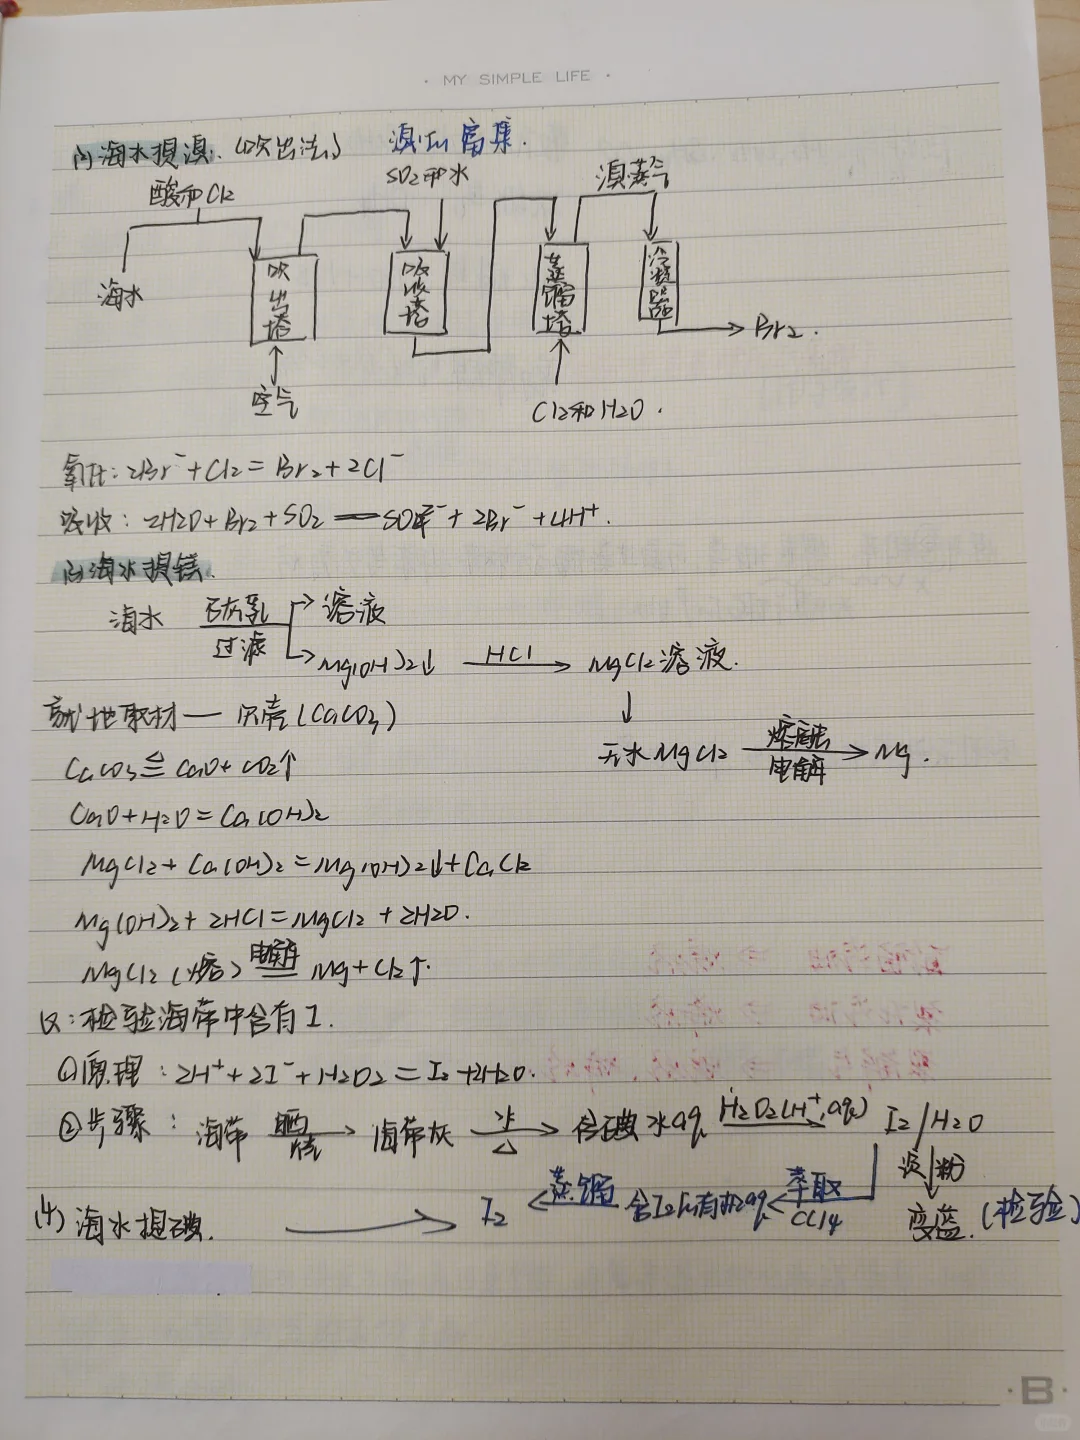 · MY SIMPLE LIFE ·
海水提溴.(吹出法) 溴的富集.
酸和Cl2 SO2和水 溴蒸气
海水 吹出塔 吸收塔 蒸馏塔 冷凝器
Br2.
空气 Cl2和H2O.
氧化: 2Br⁻+Cl2=Br2+2Cl⁻
吸收: 2H2O+Br2+SO2=SO4²⁻+2Br⁻+4H⁺.
海水提镁.
海水 石灰乳 过滤 溶液
Mg(OH)2↓ HCl→ MgCl2溶液.
就地取材——贝壳(CaCO3)
↓
无水MgCl2 熔融 电解→ Mg.
CaCO3 ≜ CaO+CO2↑
CaO+H2O=Ca(OH)2
MgCl2+Ca(OH)2=Mg(OH)2↓+CaCl2
Mg(OH)2+2HCl=MgCl2+2H2O.
MgCl2(熔) 电解= Mg+Cl2↑.
检验海带中含有I.
①原理: 2H⁺+2I⁻+H2O2=I2+2H2O.
②步骤: 海带 晒 烧→ 海带灰 水 △→ 含碘水aq H2O2(H⁺,aq)→ I2/H2O
淀粉↓
变蓝.(检验)
萃取 CCl4 含I2的有机aq 蒸馏 I2
(4) 海水提碘. →
B